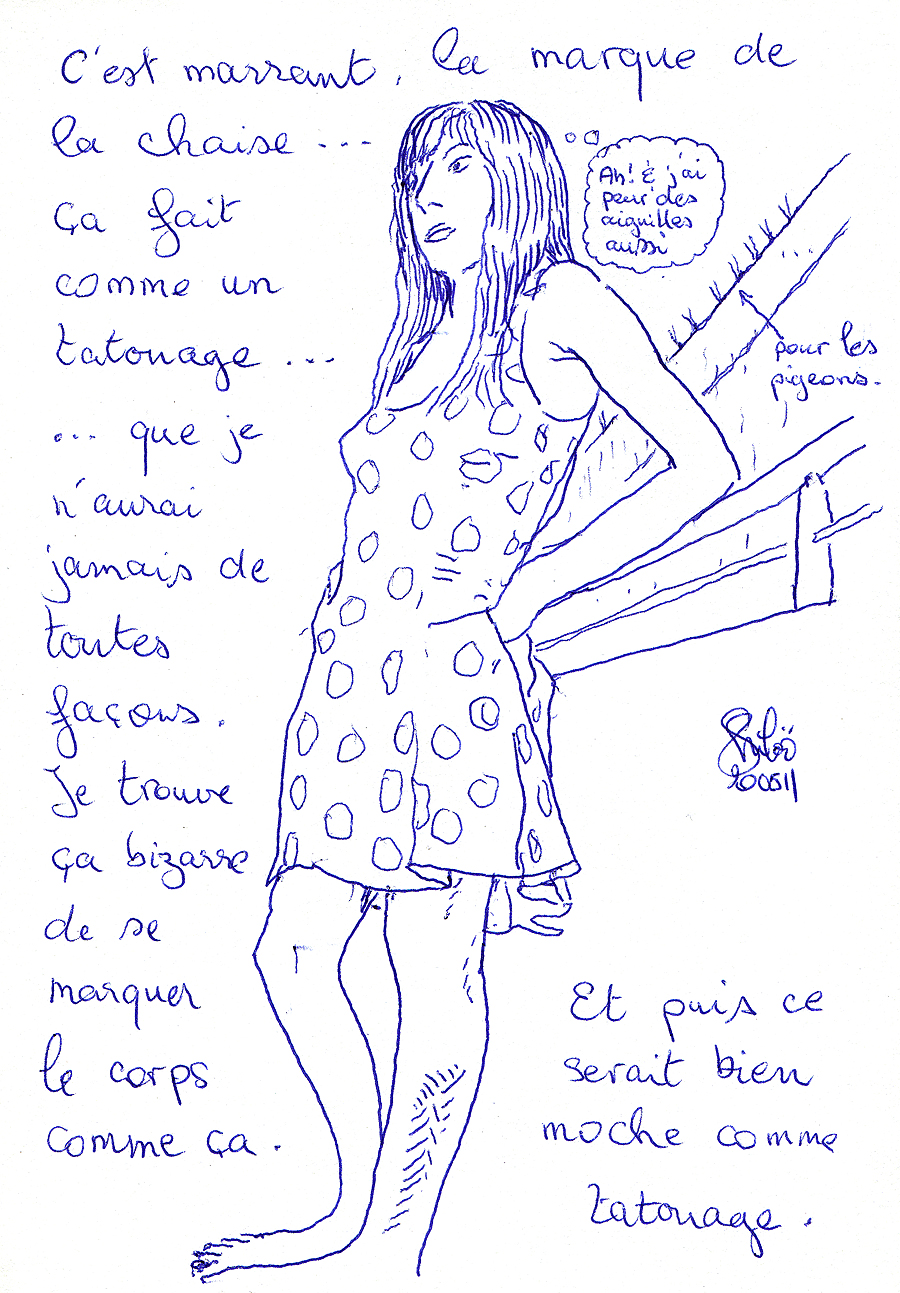 C'est marrant, la marque de
la chaise ...
ça fait
comme un
tatouage ...
... que je
n'aurai
jamais de
toutes
façons.
Je trouve
ça bizarre
de se
marquer
le corps
comme ça.
Ah! & j'ai
peur des
aiguilles
aussi
...
pour les
pigeons.
100511
Et puis ce
serait bien
moche comme
tatouage.